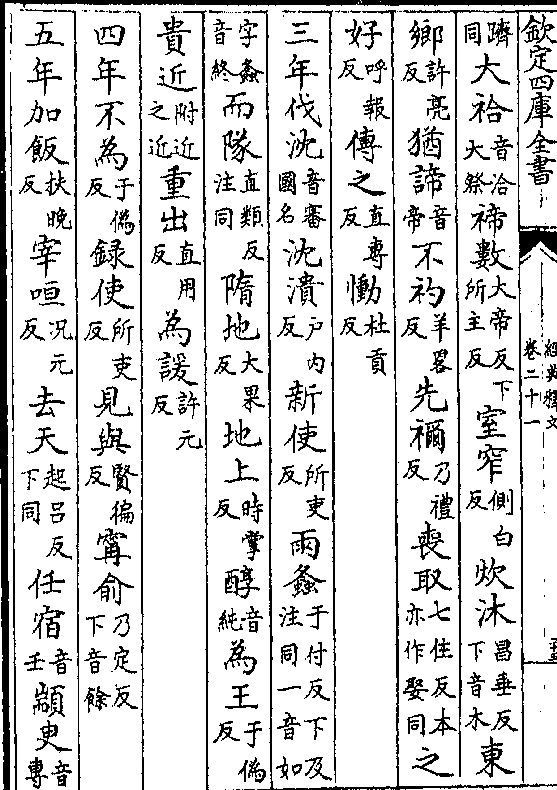 欽定四庫全書 經典釋文 卷二十一
躋同大祫音洽大祭禘數大帝反下所主反室窄側白反炊沐昌垂反下音木東
鄉許亮反猶諦音帝不礿羊畧反先禰乃禮反喪取七住反本亦作娶同之
好呼報反傳之直專反慟杜貢反
三年伐沈音審國名沈潰户内反新使所吏反雨螽于付反下及注同一音如
字螽音終而隊直類反注同隋地大果反地上時掌反醇音純為王于偽反
貴近附近之近重出直用反為諼許元反
四年不為于偽反録使所吏反見與賢徧反甯俞乃定反下音餘
五年加飯扶晚反宰咺况元反去天起吕反下同任宿音壬顓臾音專